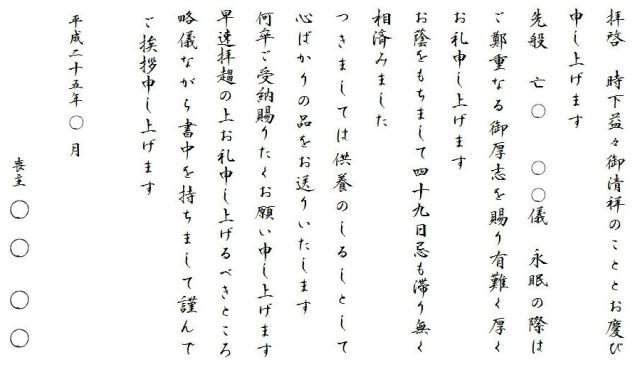 拝啓　時下益々御清祥のこととお慶び
申し上げます
先般　亡〇　〇〇儀　永眠の際は
ご鄭重なる御厚志を賜り有難く厚く
お礼申し上げます
お蔭をもちまして四十九日忌も滞り無く
相済みました
つきましては供養のしるしとして
心ばかりの品をお送りいたします
何卒ご受納賜りたくお願い申し上げます
早速拝趨の上お礼申し上げるべきところ
略儀ながら書中を持ちまして謹んで
ご挨拶申し上げます
平成二十五年〇月
喪主　〇〇　〇〇